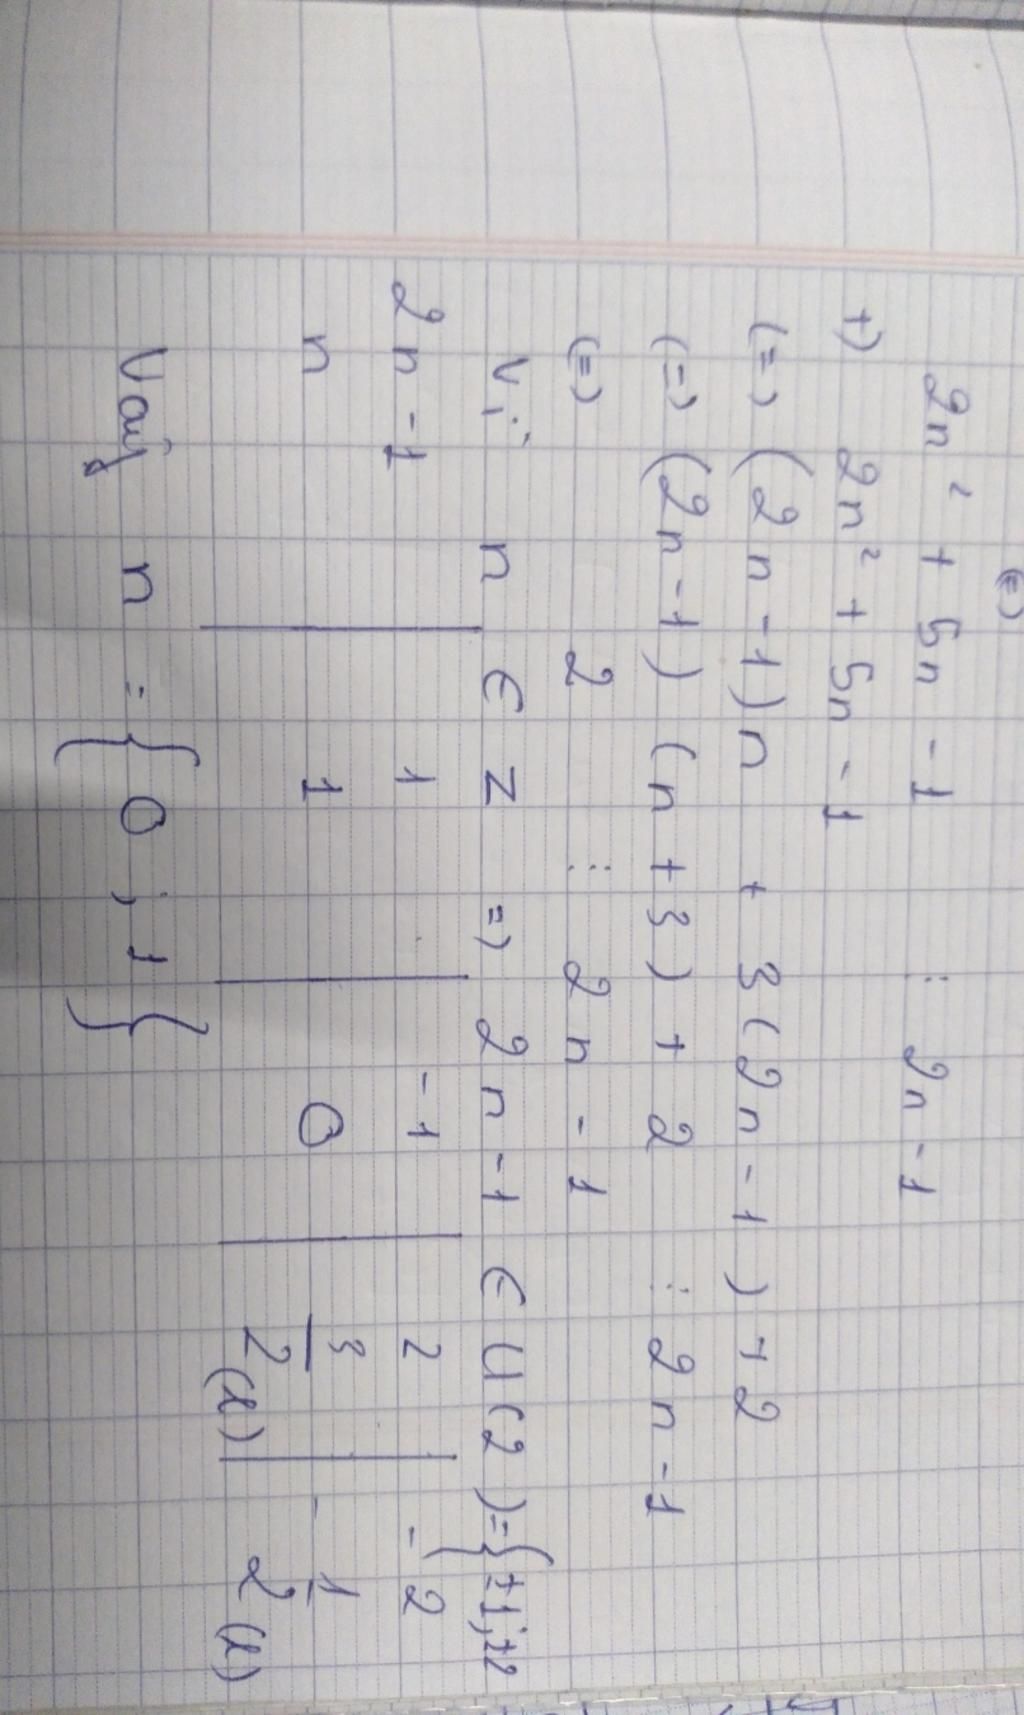 (=)
2n² + 5n - 1 ⋮ 2n - 1
t) 2n² + 5n - 1
(=) (2n - 1)n + 3(2n - 1) + 2
(=) (2n - 1)(n + 3) + 2 ⋮ 2n - 1
(=) 2 ⋮ 2n - 1
Vì n ∈ Z => 2n - 1 ∈ U(2) = {±1; ±2
2n - 1 | 1 | -1 | 2 | -2
n | 1 | 0 | 3/2 (l) | -1/2 (l)
Vậy n = {0; 1}